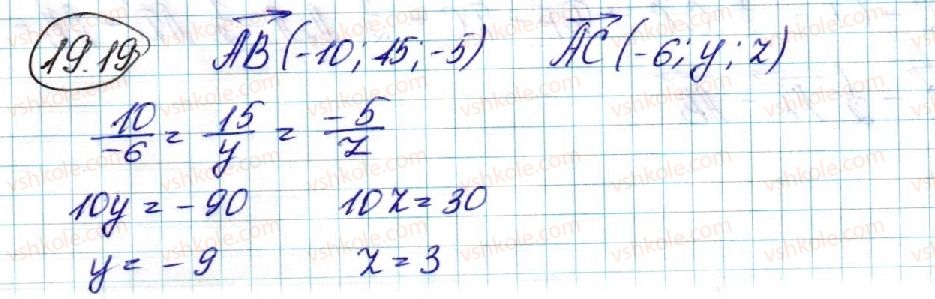 19.19 AB(-10; 15; -5) AC(-6; y; z)
10/-6 = 15/y = -5/z
10y = -90 10z = 30
y = -9 z = 3
vshkole.com